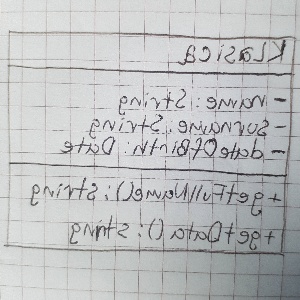 Klasica
- name: String
- Surname: String
- dateOfBirth: Date
+ getFullName(): String
+ getData(): String